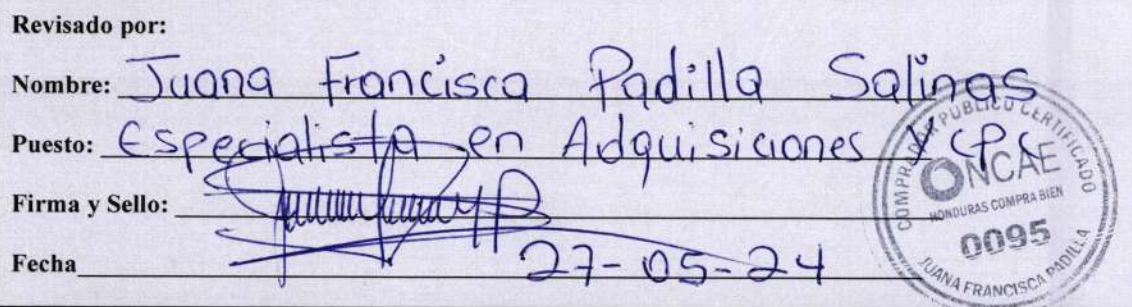 Revisado por:
Nombre: Juana Francisca Padilla Salinas
Puesto: Especialista en Adquisiciones y CPC
Firma y Sello:
Fecha 27-05-24
COMPRADOR PUBLICO CERTIFICADO
ONCAE
HONDURAS COMPRA BIEN
0095
JUANA FRANCISCA PADILLA